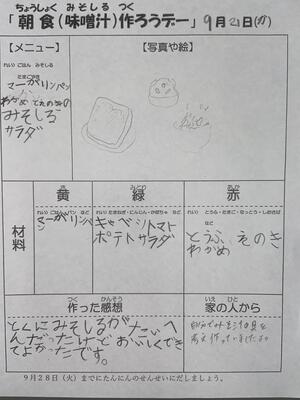 ちょうしょく みそしる つく
「朝食(味噌汁)作ろうデー」9月21日(火)
【メニュー】
【写真や絵】
れい)ごはん みそしる
たまごやき
マーガリンパン
わかめ えのきの
みそしる
サラダ
き
黄
みどり
緑
あか
赤
材料
れい)ごはん・パン など
マーガリンパン
れい)たまねぎ・にんじん・かぼちゃ など
キャベツトマト
ポテトサラダ
れい) とうふ・たまご・なっとう・しおさば など
とうふ えのき
わかめ
つく かんそう
作った感想
いえ ひと
家の人から
とくにみそしるがたいへ
んだったけどおいしくでき
てよかったです。
自分でみそ汁の具を
考え作っていましたよ。
9月28日(火)までにたんにんのせんせいにだしましょう。